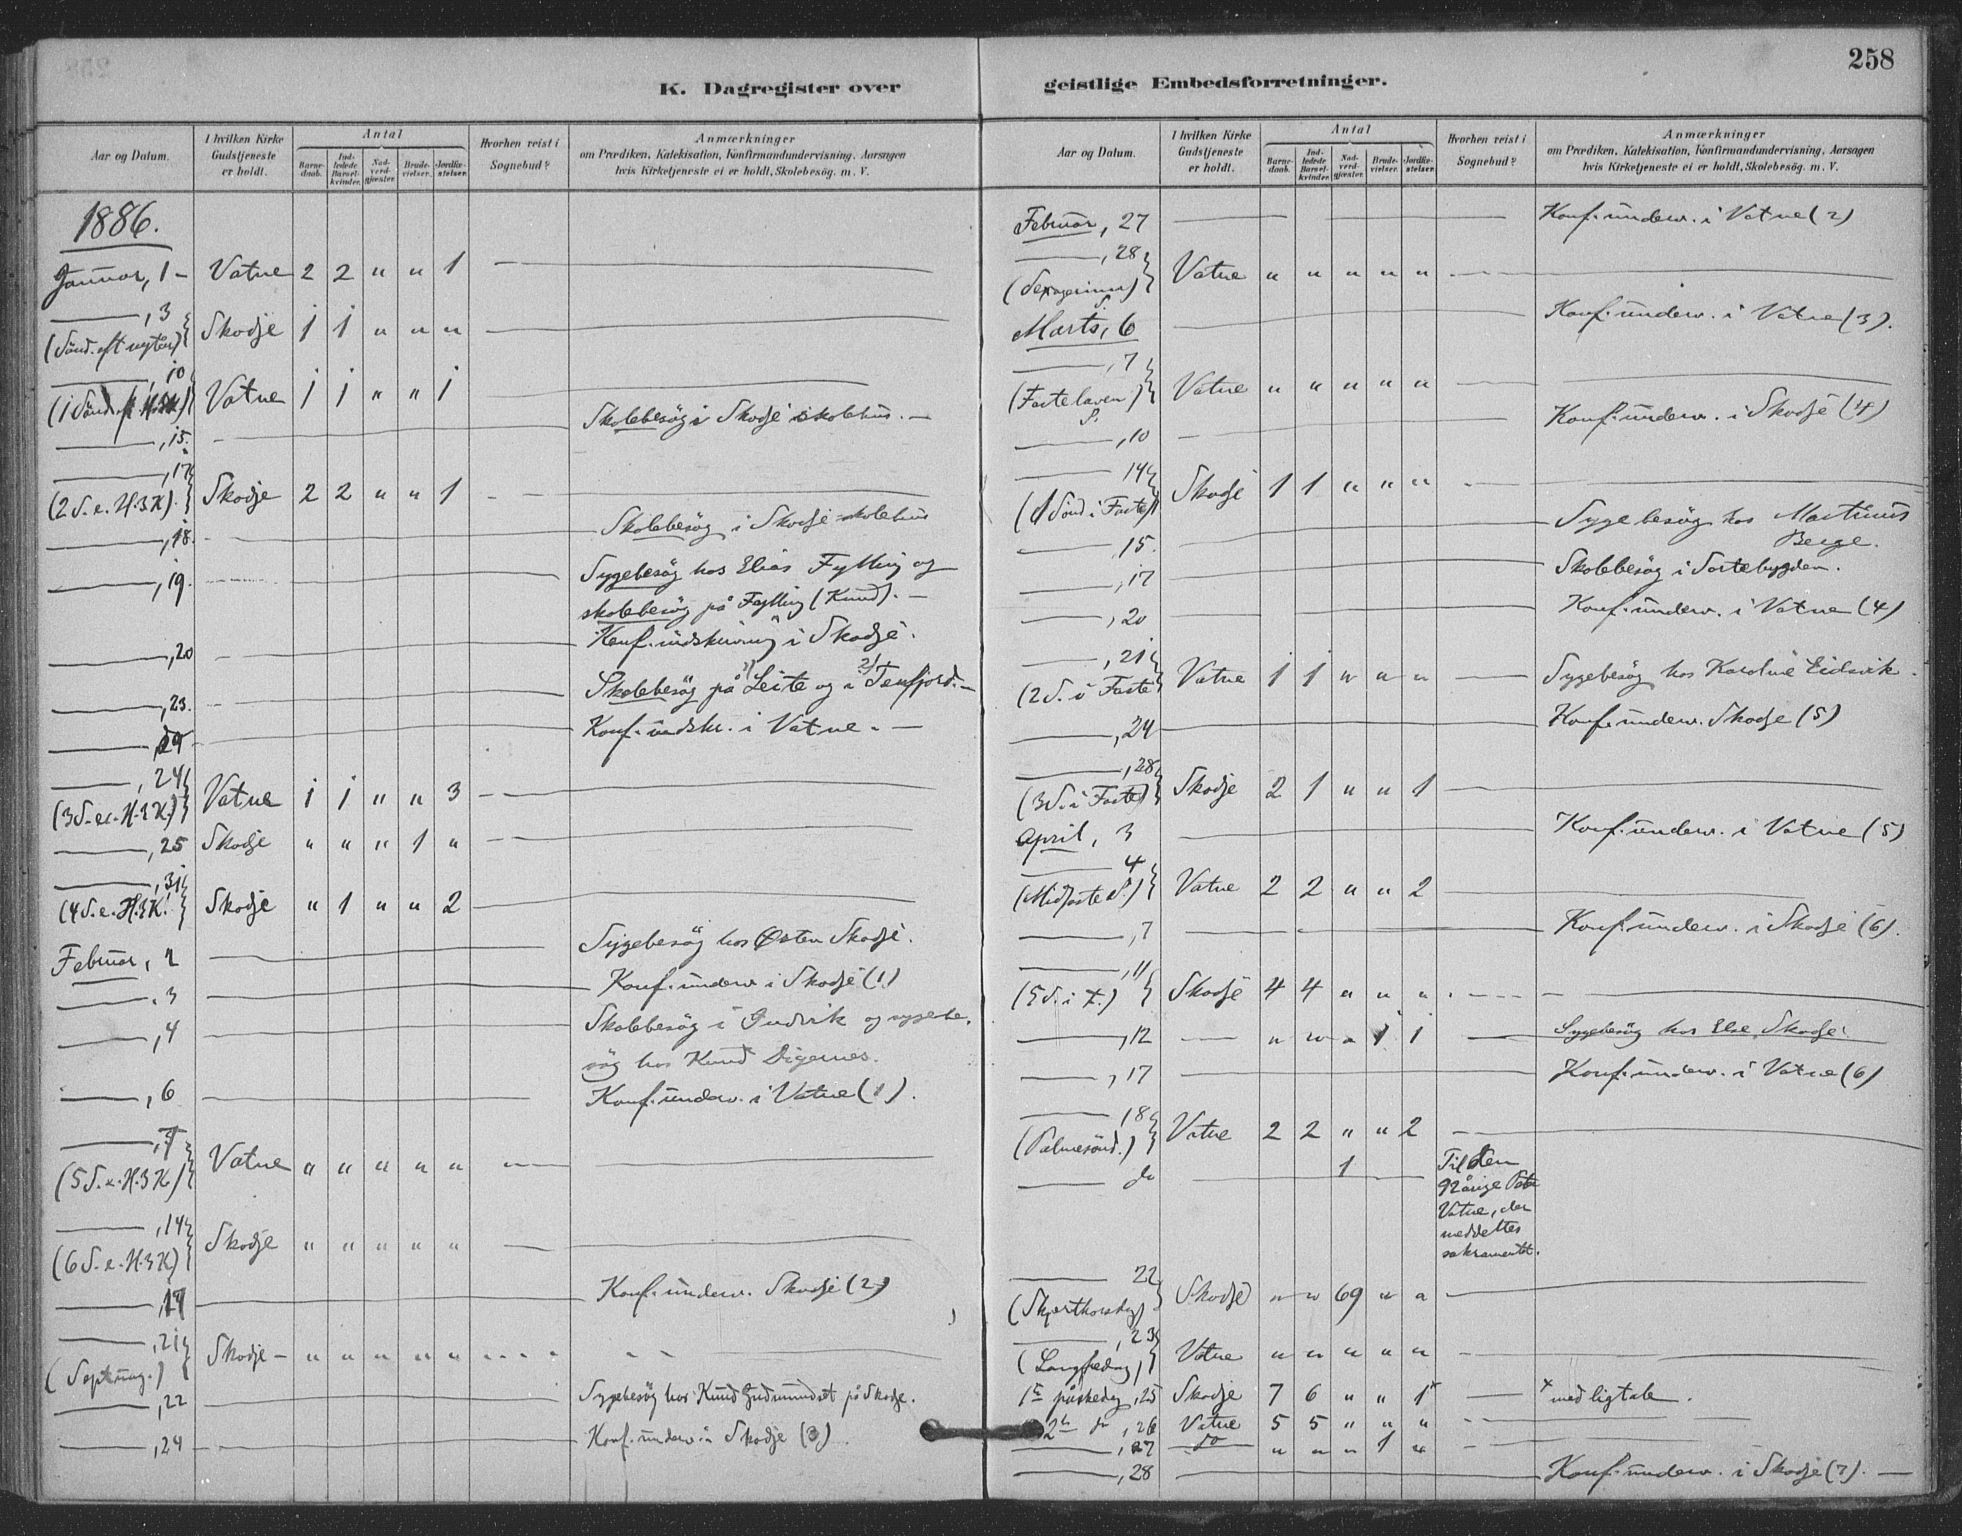 258
K. Dagregister over geistlige Embedsforretninger.
Aar og Datum. | I hvilken Kirke Gudstjeneste er holdt. | Antal | Barnedaab. | Indledede Barselkvinder. | Nadverdgjæster. | Brudevielser. | Jordfæstelser. | Hvorhen reist i Sognebud? | Anmærkninger om Prædiken, Katekisation, Konfirmandundervisning, Aarsagen hvis Kirketjeneste ei er holdt, Skolebesög. m. V.
1886.
Januar, 1 - Vatne 2 2 " " 1
, 3 (Sönd. eft nytår) Skodje 1 1 " " "
, 10 (1 Sönd. eft. H.3K) Vatne 1 1 " " 1
, 15. Skolebesög i Skodje skolehus. -
, 17 (2 S. e. H.3K). Skodje 2 2 " " 1
, 18. Skolebesög i Skodje skolehus
, 19 Sygebesög hos Elias Fylling og
skolebesög på Fylling (Knud). -
, 20 Konf. indskrivning i Skodje.
, 23. Skolebesög på 1) Leite og i 2) Tenfjord. -
Konf. indskr. i Vatne. -
, 24 (3 S. e. H.3K.) Vatne 1 1 " " 3
, 25 Skodje " " " 1 "
, 31 (4 S. e. H.3K. Skodje " 1 " " 2
Februar, 2 Sygebesög hos Østen Skodje.
, 3 Konf. underv. i Skodje (1)
, 4 Skolebesög i og sygebe-
sög hos Knud Digernes.
, 6 Konf. underv. i Vatne (1).
, 7 (5 S. e. H.3K) Vatne " " " " "
, 14 (6 S. e. H.3K) Skodje " " " " "
, 17 Konf. underv. Skodje (2)
, 21 (Septuag.) Skodje - " " " " "
, 22 Sygebesög hos Knud Gudmundset på Skodje.
, 24 Konf. underv. i Skodje (3)
Aar og Datum. | I hvilken Kirke Gudstjeneste er holdt. | Antal | Barnedaab. | Indledede Barselkvinder. | Nadverdgjæster. | Brudevielser. | Jordfæstelser. | Hvorhen reist i Sognebud? | Anmærkninger om Prædiken, Katekisation, Konfirmandundervisning, Aarsagen hvis Kirketjeneste ei er holdt, Skolebesög m. V.
Februar, 27 Konf. underv. i Vatne (2)
, 28 (Sexagesima S.) Vatne " " " " "
Marts, 6 Konf. underv. i Vatne (3).
, 7 (Fastelaven S.) Vatne " " " " "
, 10 Konf. underv. i Skodje (4)
14 (1 Sönd i Faste) Skodje 1 1 " " "
, 15. Sygebesög hos Martinus
Berge.
, 17 Skolebesög i Sortebygden.
, 20 Konf. underv. i Vatne (4)
, 21 (2 S. i Faste Vatne 1 1 " " " Sygebesög hos Karoline Eidsvik.
, 24 Konf. underv. Skodje (5)
, 28 (3 S. i Faste) Skodje 2 1 " " 1
April, 3 Konf. underv. i Vatne (5)
4 (Midfaste S.) Vatne 2 2 " " 2
, 7 Konf. underv. i Skodje (6).
, 11 (5 S. i F.) Skodje 4 4 " " "
, 12 " " " 1 1 Sygebesög hos Else Skodje.
, 17 Konf. underv. i Vatne (6)
, 18 (Palmesönd.) Vatne 2 2 " " 2
do 1 Til den
92årige
Vatne, der
meddeltes
sakramentet.
22 (Skjærthorsdag) Skodje " " 69 " "
, 23 (Langfredag) Vatne " " " " "
1ste påskedag, 25 Skodje 7 6 " " 1x x med ligtale.
2den do, 26 Vatne 5 5 " " "
, 27 do " " " 1 "
, 28 Konf. underv. i Skodje (7). -